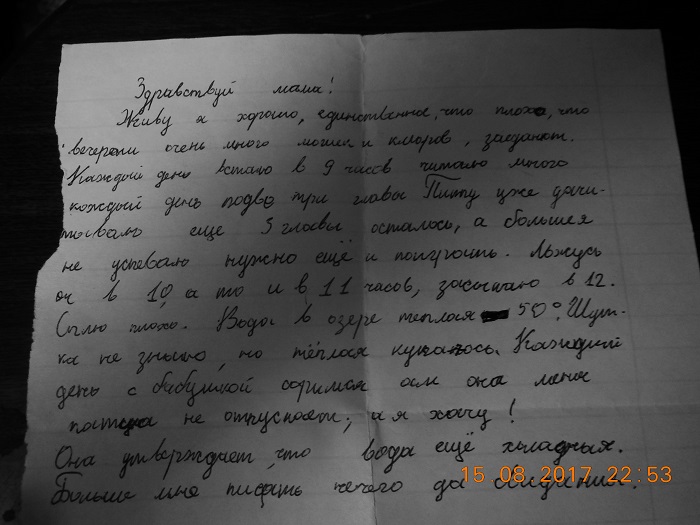 Здравствуй мама!
Живу я хорошо, единственное, что плохо, что
вечерами очень много мошки и кморов, заедают.
Каждый день встаю в 9 часов читаю много
каждый день подва три главы Пиппу уже дачи-
тываю еще 5 главы осталось, а больше я
не успеваю нужно ещё и поиграть. Ложусь
оч в 10, а то и в 11 часов, засыпаю в 12.
Сплю плохо. Вода в озере теплая 50°. Шут-
ка не знаю, но тёплая купалось. Каждый
день с бабушкой соримся она меня
не отпускает, а я хочу!
Она утверждает, что вода ещё хладная.
Больше мне писать нечего да свидения.
15.08.2017 22:53